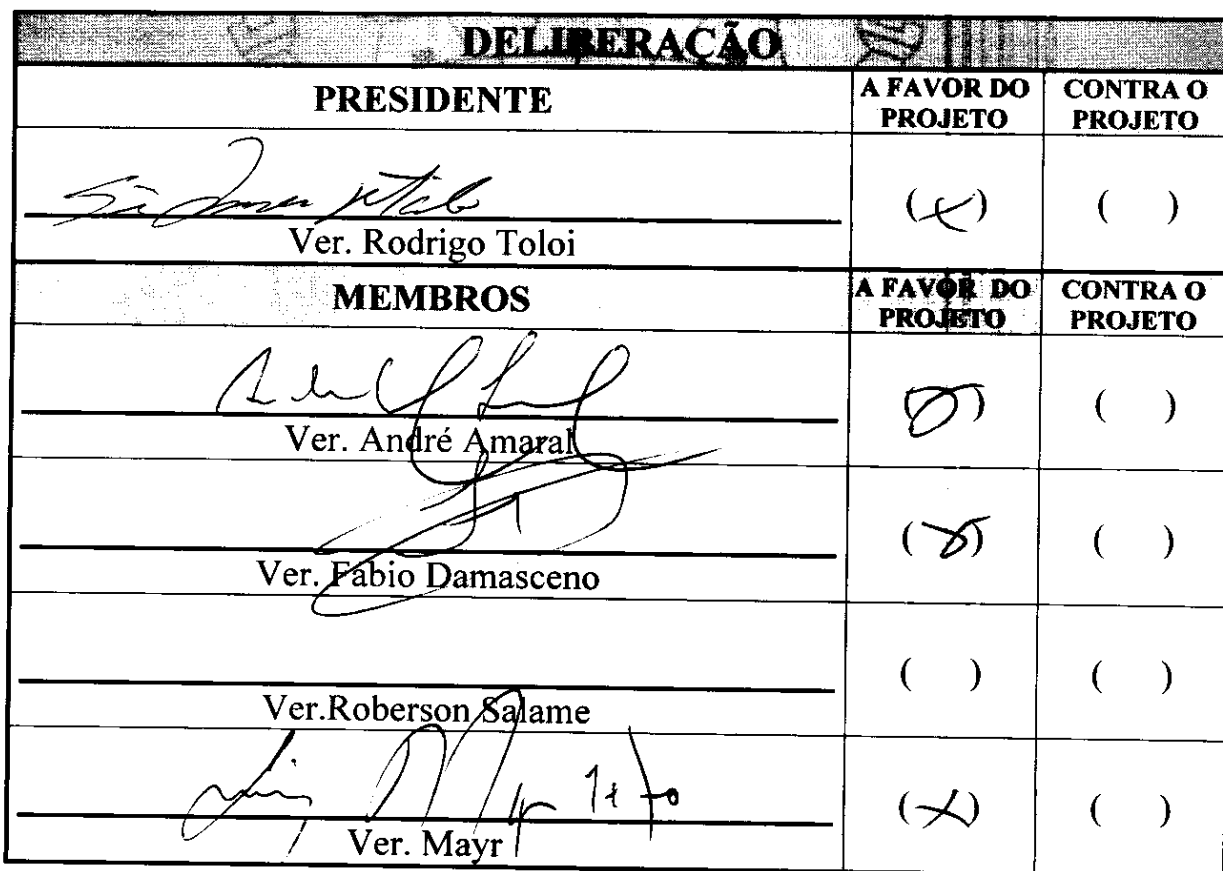 DELIBERAÇÃO
PRESIDENTE
A FAVOR DO PROJETO
CONTRA O PROJETO
(x) ( )
Ver. Rodrigo Toloi
MEMBROS
A FAVOR DO PROJETO
CONTRA O PROJETO
(x) ( )
Ver. André Amaral
(x) ( )
Ver. Fabio Damasceno
( ) ( )
Ver.Roberson Salame
(x) ( )
Ver. Mayr